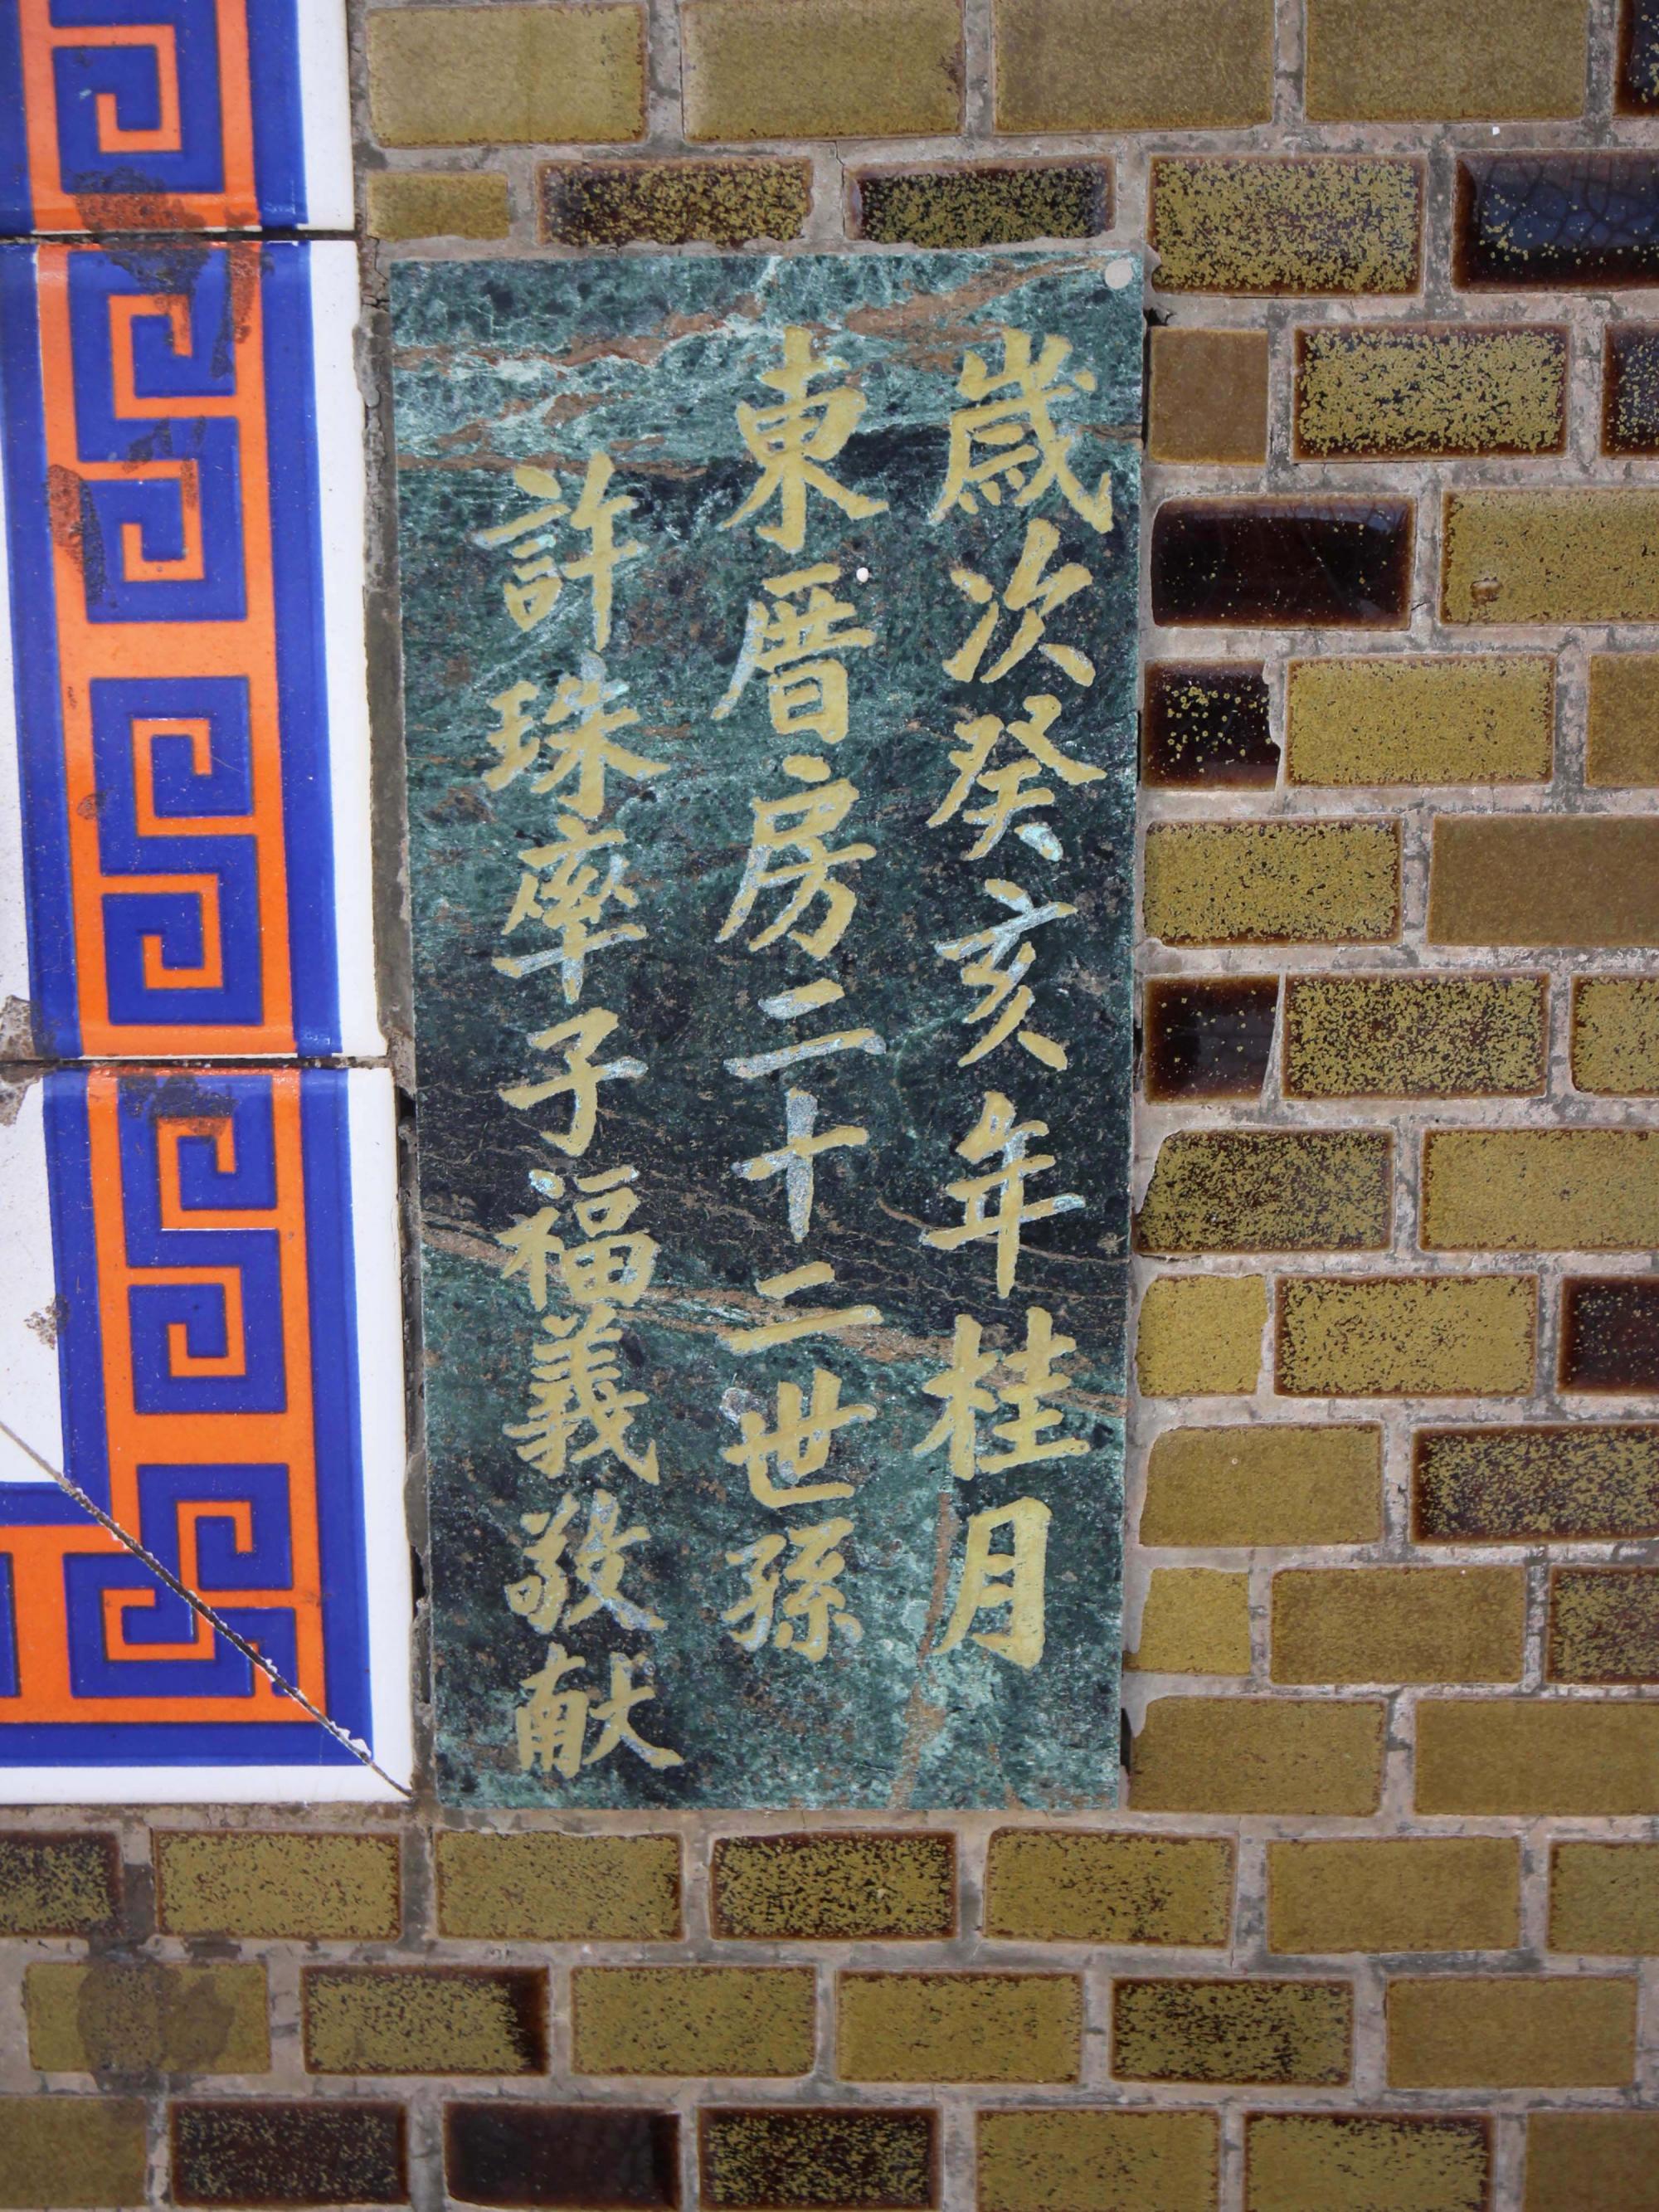 歲次癸亥年桂月
東厝房二十二世孫
許珠率子福義敬献